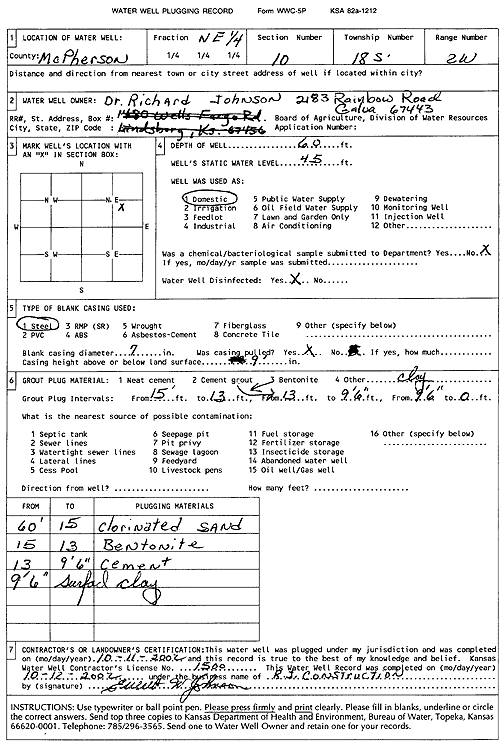 WATER WELL PLUGGING RECORD Form WWC-5P KSA 82a-1212
1 LOCATION OF WATER WELL: Fraction NE 1/4 Section Number Township Number Range Number
County: McPherson 1/4 1/4 1/4 10 18 S 2W
Distance and direction from nearest town or city street address of well if located within city?
2 WATER WELL OWNER: Dr. Richard Johnson 2183 Rainbow Road
RR#, St. Address, Box #: 1480 Wells Fargo Rd. Galva 67443 Board of Agriculture, Division of Water Resources
City, State, ZIP Code : Lindsborg, Ks. 67456 Application Number:
3 MARK WELL'S LOCATION WITH AN "X" IN SECTION BOX:
N
N W N E
X
W E
S W S E
S
4 DEPTH OF WELL......60......ft.
WELL'S STATIC WATER LEVEL....45.....ft.
WELL WAS USED AS:
1 Domestic 5 Public Water Supply 9 Dewatering
2 Irrigation 6 Oil Field Water Supply 10 Monitoring Well
3 Feedlot 7 Lawn and Garden Only 11 Injection Well
4 Industrial 8 Air Conditioning 12 Other...........
Was a chemical/bacteriological sample submitted to Department? Yes....No.X
If yes, mo/day/yr sample was submitted..............
Water Well Disinfected: Yes.X.. No......
5 TYPE OF BLANK CASING USED:
1 Steel 3 RMP (SR) 5 Wrought 7 Fiberglass 9 Other (specify below)
2 PVC 4 ABS 6 Asbestos-Cement 8 Concrete Tile
Blank casing diameter..7......in. Was casing pulled? Yes..X. No.... If yes, how much..........
Casing height above or below land surface......9.......in.
6 GROUT PLUG MATERIAL: 1 Neat cement 2 Cement grout 3 Bentonite 4 Other.. clay
Grout Plug Intervals: From 15 ft. to 13 ft. From 13 ft. to 9'6" ft., From 9'6" to 0 ft.
What is the nearest source of possible contamination:
1 Septic tank 6 Seepage pit 11 Fuel storage 16 Other (specify below)
2 Sewer lines 7 Pit privy 12 Fertilizer storage
3 Watertight sewer lines 8 Sewage lagoon 13 Insecticide storage
4 Lateral lines 9 Feedyard 14 Abandoned water well
5 Cess Pool 10 Livestock pens 15 Oil well/Gas well
Direction from well? .................. How many feet? ..................
FROM TO PLUGGING MATERIALS
60' 15 clorinated SAND
15 13 Bentonite
13 9'6" Cement
9'6" Surface clay
7 CONTRACTOR'S OR LANDOWNER'S CERTIFICATION:This water well was plugged under my jurisdiction and was completed
on (mo/day/year).10-11-2002 and this record is true to the best of my knowledge and belief. Kansas
Water Well Contractor's License No. ...1500..... This Water Well Record was completed on (mo/day/
year) 10-12-2002 under the business name of K.J. CONSTRUCTION
by (signature)
INSTRUCTIONS: Use typewriter or ball point pen. Please press firmly and print clearly. Please fill in blanks, underline or circle
the correct answers. Send top three copies to Kansas Department of Health and Environment, Bureau of Water, Topeka, Kansas
66620-0001. Telephone: 785/296-3565. Send one to Water Well Owner and retain one for your records.